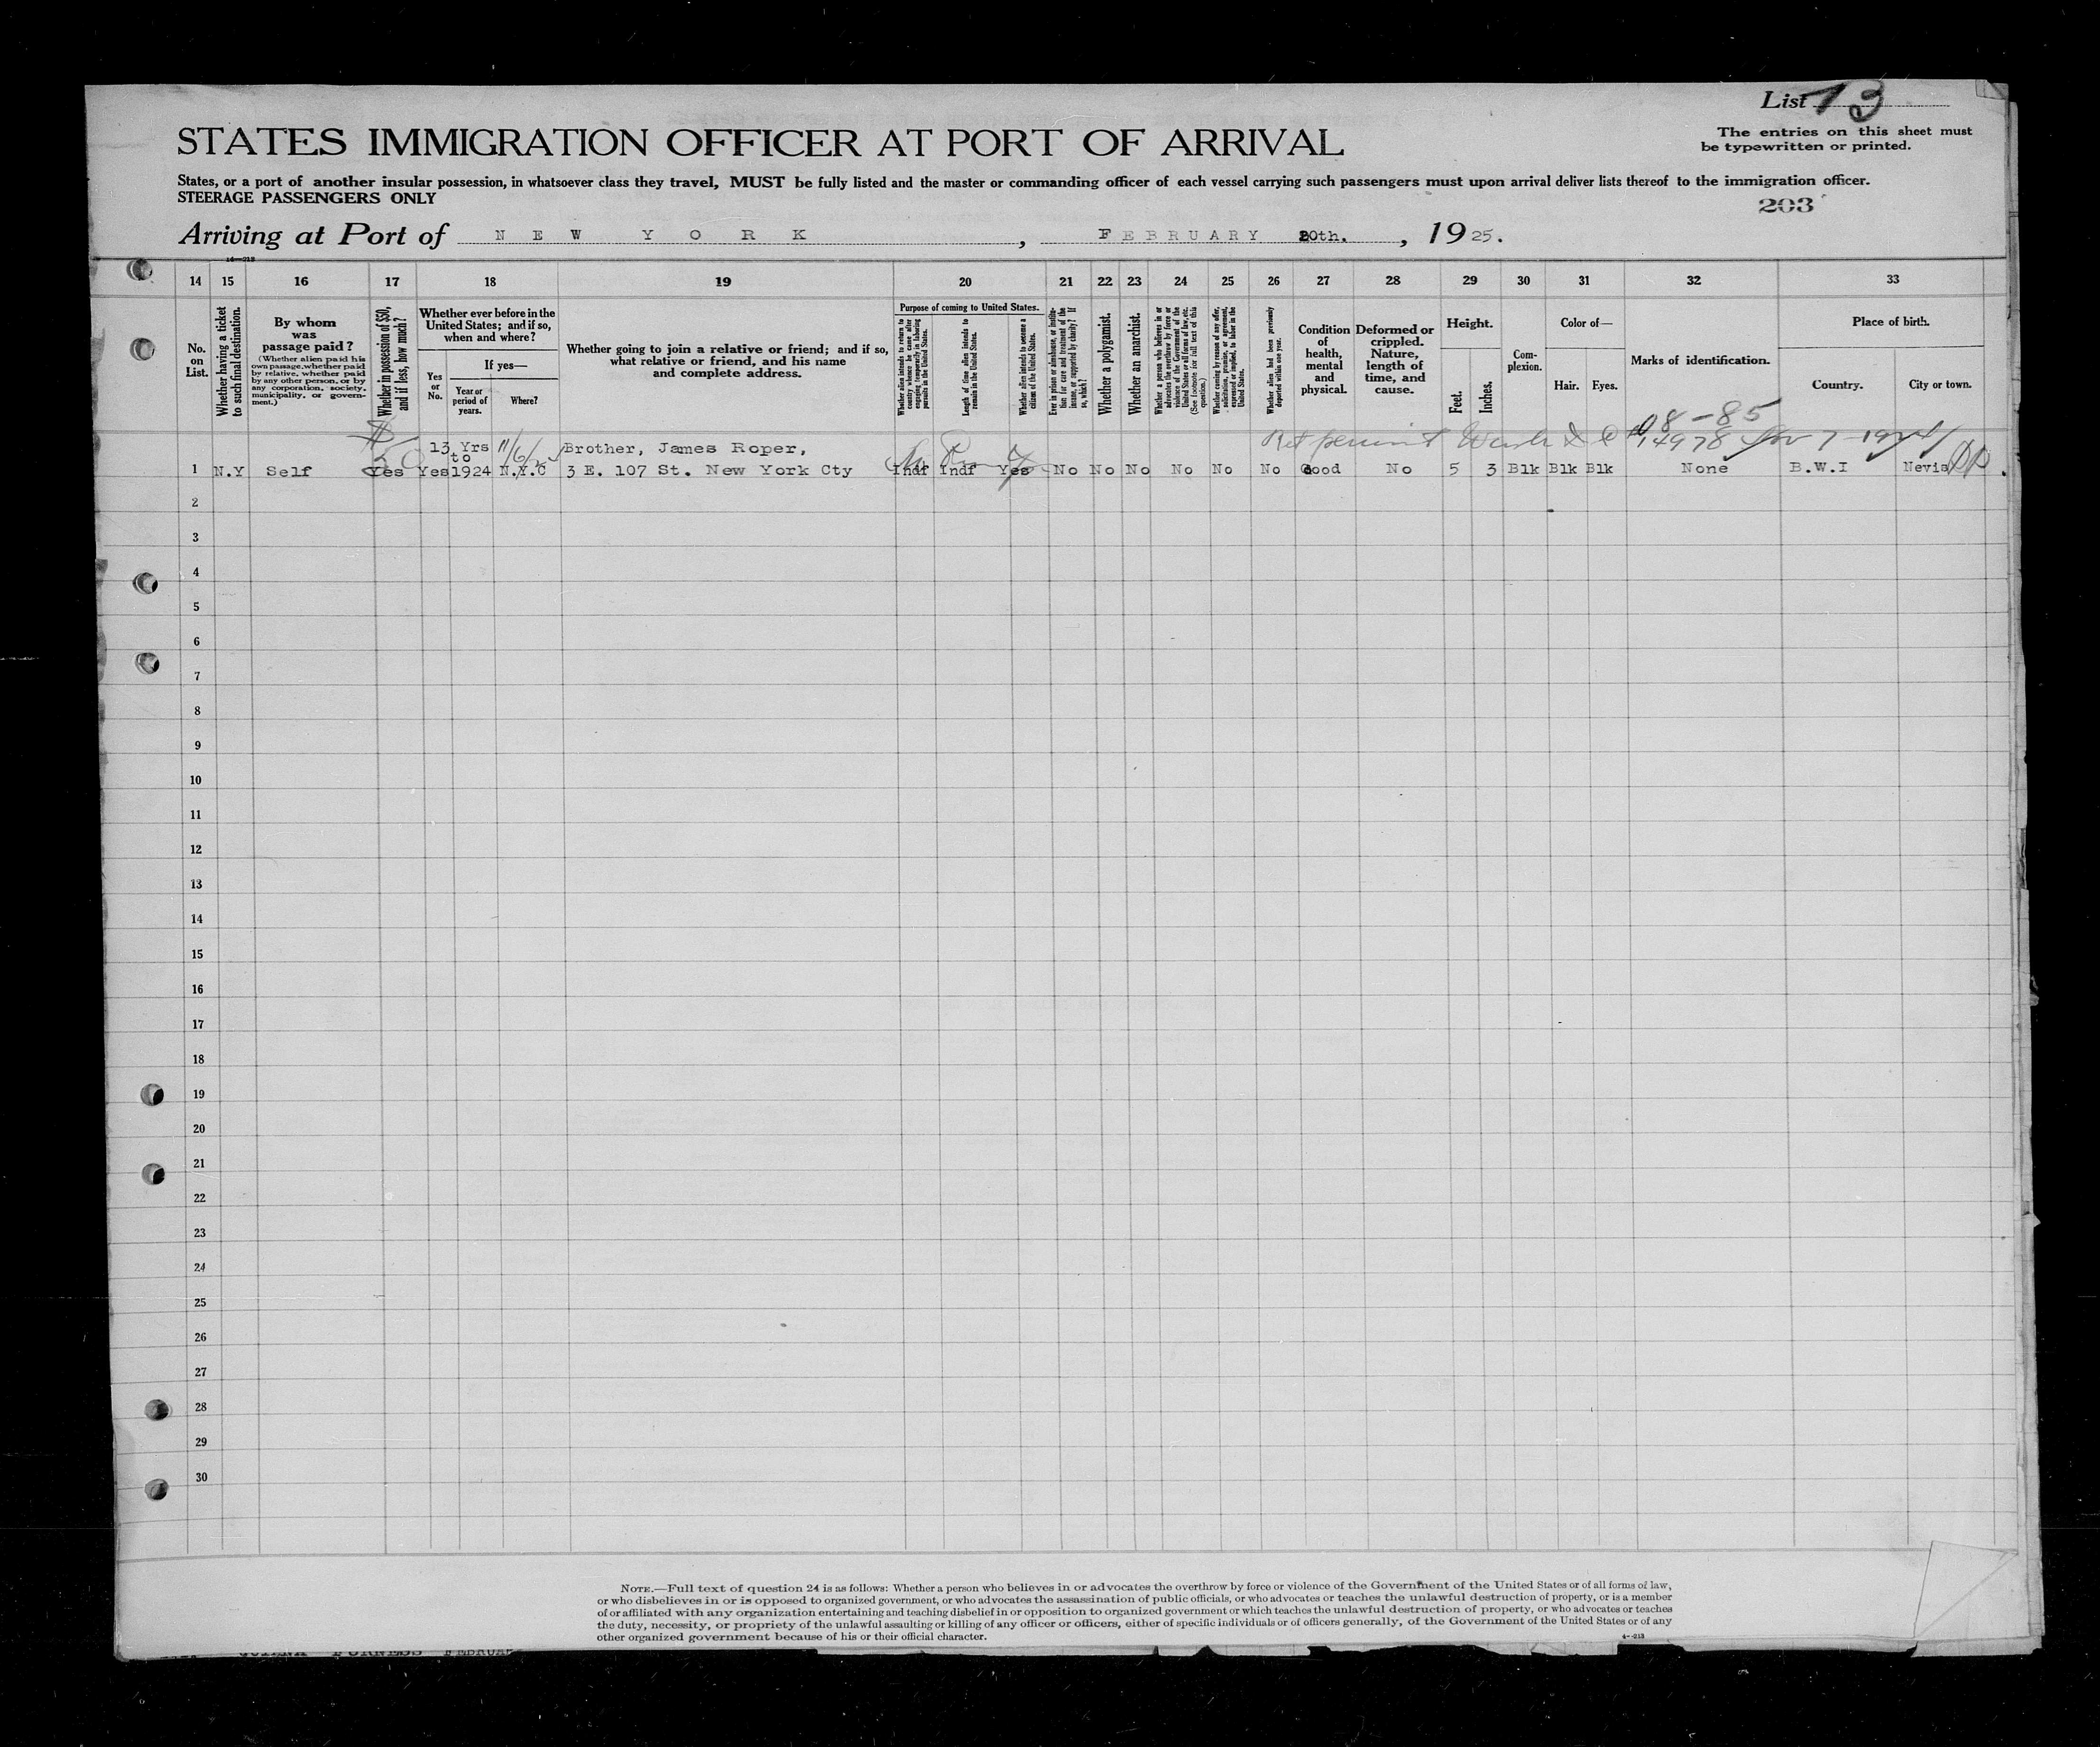 List 13
STATES IMMIGRATION OFFICER AT PORT OF ARRIVAL
The entries on this sheet must
be typewritten or printed.
States, or a port of another insular possession, in whatsoever class they travel, MUST be fully listed and the master or commanding officer of each vessel carrying such passengers must upon arrival deliver lists thereof to the immigration officer.
STEERAGE PASSENGERS ONLY
203
Arriving at Port of NEW YORK, FEBRUARY 20th., 1925.
14 15 16 17 18 19 20 21 22 23 24 25 26 27 28 29 30 31 32 33
No. on List.
Whether having a ticket to such final destination.
By whom was passage paid?
(Whether alien paid his own passage, whether paid by relative, whether paid by any other person, or by any corporation, society, municipality, or government.)
Whether in possession of $50, and if less, how much?
Whether ever before in the United States; and if so, when and where?
Yes or No.
If yes—
Year or period of years.
Where?
Whether going to join a relative or friend; and if so, what relative or friend, and his name and complete address.
Purpose of coming to United States.
Whether alien intends to return to country whence he came after engaging temporarily in laboring pursuits in the United States.
Length of time alien intends to remain in the United States.
Whether alien intends to become a citizen of the United States.
Ever in prison or almshouse, or institution for care and treatment of the insane, or supported by charity? If so, which?
Whether a polygamist.
Whether an anarchist.
Whether a person who believes in or advocates the overthrow by force or violence of the Government of the United States or all forms of law, etc. (See footnote for full text of this question.)
Whether coming by reason of any offer, solicitation, promise, or agreement, expressed or implied, to labor in the United States.
Whether alien had been previously deported within one year.
Condition of health, mental and physical.
Deformed or crippled. Nature, length of time, and cause.
Height.
Feet.
Inches.
Complexion.
Color of—
Hair.
Eyes.
Marks of identification.
Place of birth.
Country.
City or town.
$50
13 Yrs to
Brother, James Roper,
Ret permit Wash D C
14978 Nov 7 1924
8-85
1 N.Y Self Yes Yes 1924 N.Y.C 3 E. 107 St. New York Cty Indf Indf Yes No No No No No No Good No 5 3 Blk Blk Blk None B.W.I Nevis
2
3
4
5
6
7
8
9
10
11
12
13
14
15
16
17
18
19
20
21
22
23
24
25
26
27
28
29
30
NOTE.—Full text of question 24 is as follows: Whether a person who believes in or advocates the overthrow by force or violence of the Government of the United States or of all forms of law,
or who disbelieves in or is opposed to organized government, or who advocates the assassination of public officials, or who advocates or teaches the unlawful destruction of property, or is a member
of or affiliated with any organization entertaining and teaching disbelief in or opposition to organized government or which teaches the unlawful destruction of property, or who advocates or teaches
the duty, necessity, or propriety of the unlawful assaulting or killing of any officer or officers, either of specific individuals or of officers generally, of the Government of the United States or of any
other organized government because of his or their official character.